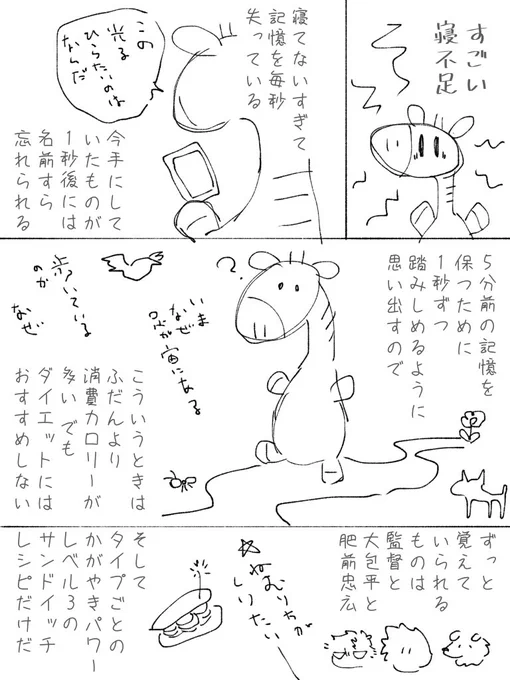 すごい
寝不足
寝てないすぎて
記憶を毎秒
失っている
この
光る
ひらたいのは
なんだ
今手にして
いたものが
1秒後には
名前すら
忘れられる
5分前の記憶を
保つために
1秒ずつ
踏みしめるように
思い出すので
?
いま
なぜ
足が宙にある
歩いている
のか
なぜ
こういうときは
ふだんより
消費カロリーが
多い でも
ダイエットには
おすすめしない
ずっと
覚えて
いられる
ものは
監督と
大包平と
肥前忠広
ねむりちが
しりたい
そして
タイプごとの
かがやきパワー
レベル3の
サンドイッチ
レシピだけだ